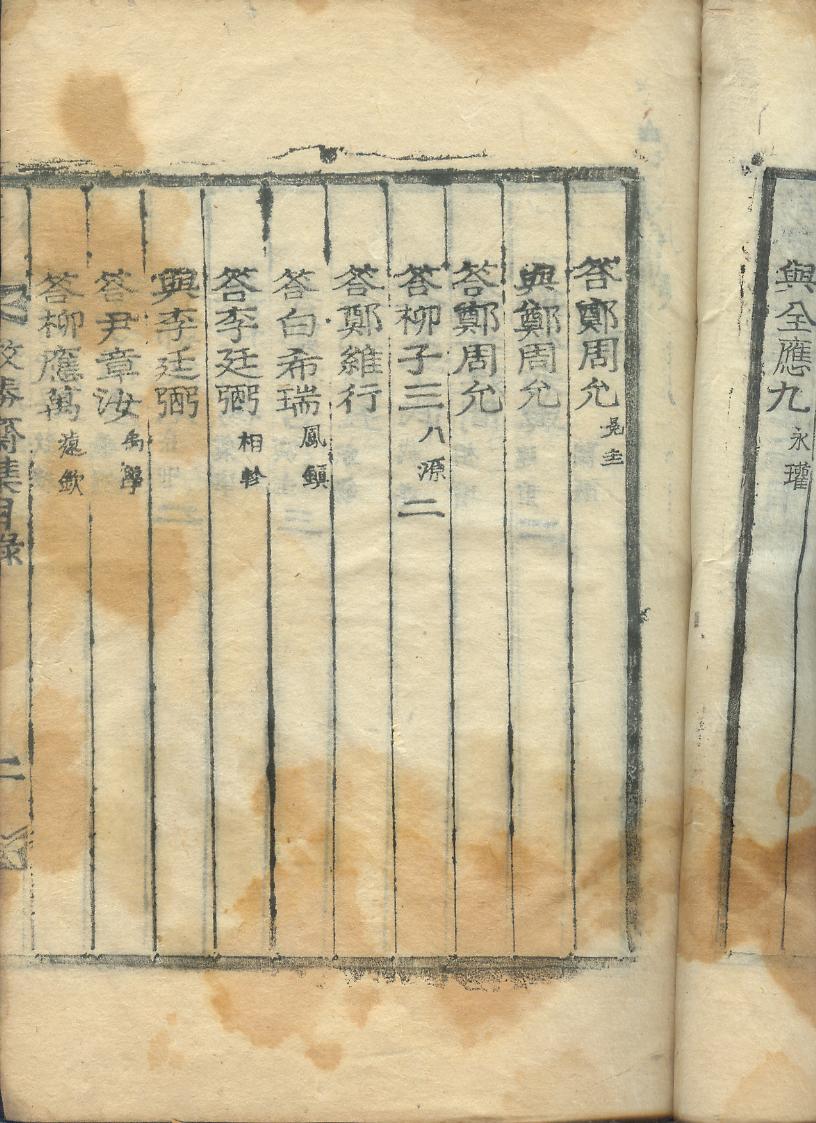 與全應九 永瓘
答鄭周允 冕圭
與鄭周允
答鄭周允
答柳子三 八源 二
答鄭維行
答白希瑞 鳳鎭
答李廷弼 相軫
與李廷弼
答尹章汝 禹學
答柳應萬 遠欽
勝齋集目錄 二